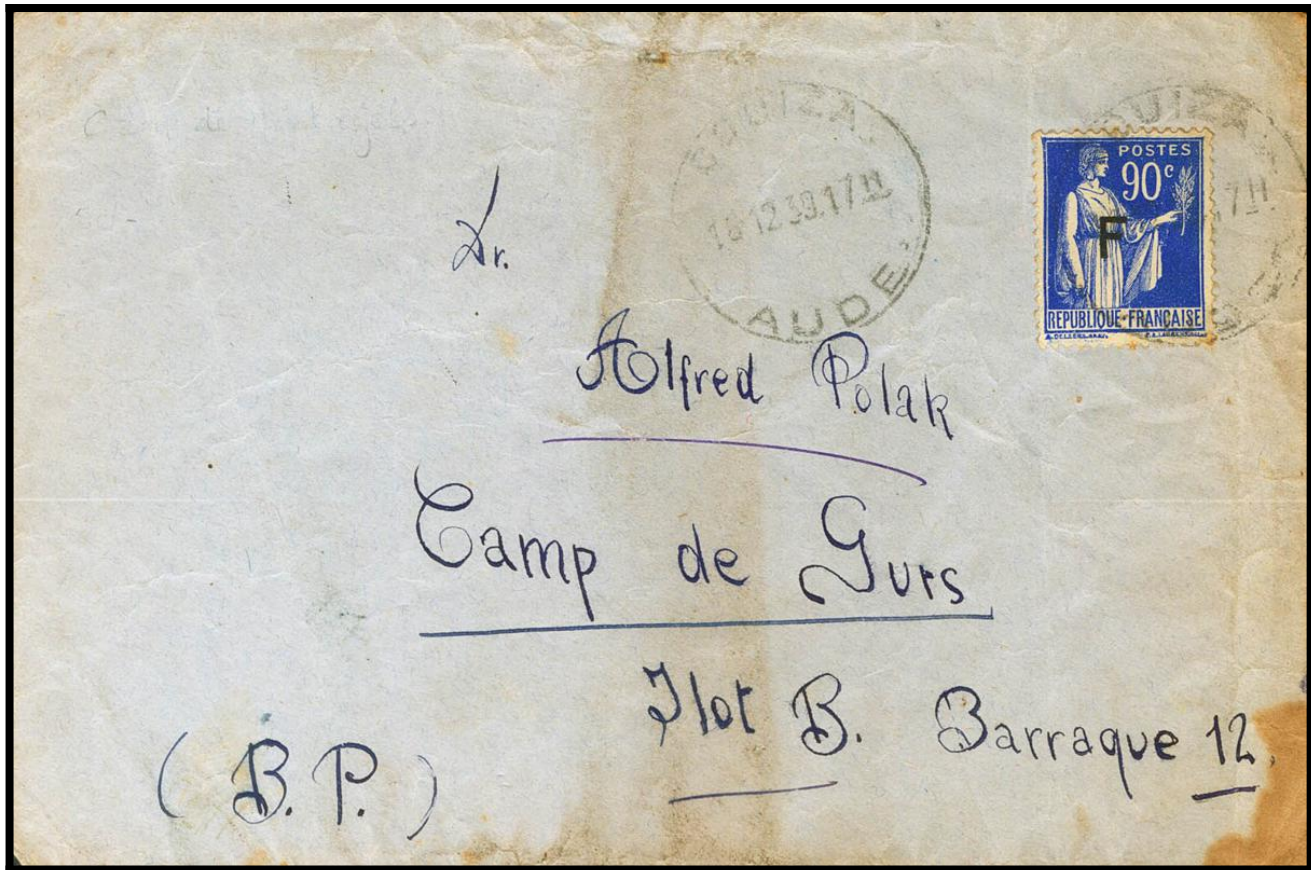 Camp de
COUIZA
16 12 39.17H
AUDE
UIZA
7H
POSTES
90c
F
REPUBLIQUE FRANÇAISE
Dr.
Alfred Polak
Camp de Gurs
Ilot B. Barraque 12.
(B.P.)